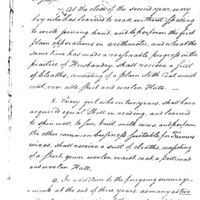 At the close of the second year, every
boy who has learned to read without spelling
to write joining hand, and to perform the first
plain operations in arithmetic, and who at the
same time has made a reasonable progress in the
practice of Husbandry shall receive a suit
of cloaths, consisting of a plain cloth Coat, waist
coat, over alls, shirt and woolen Hatt.
2. Every girl who in two years, shall have
acquired equal skill in reading, and learned
to spin well, to sew, knit, milk cows, and perform
the other common business suitable for Farmers
wives, shall receive a suit of cloaths, consisting
of a short gown woolen waist coat a petticoat
and woolen Hatt.
In addition to the foregoing encourage
ments at the end of three years, as many as two